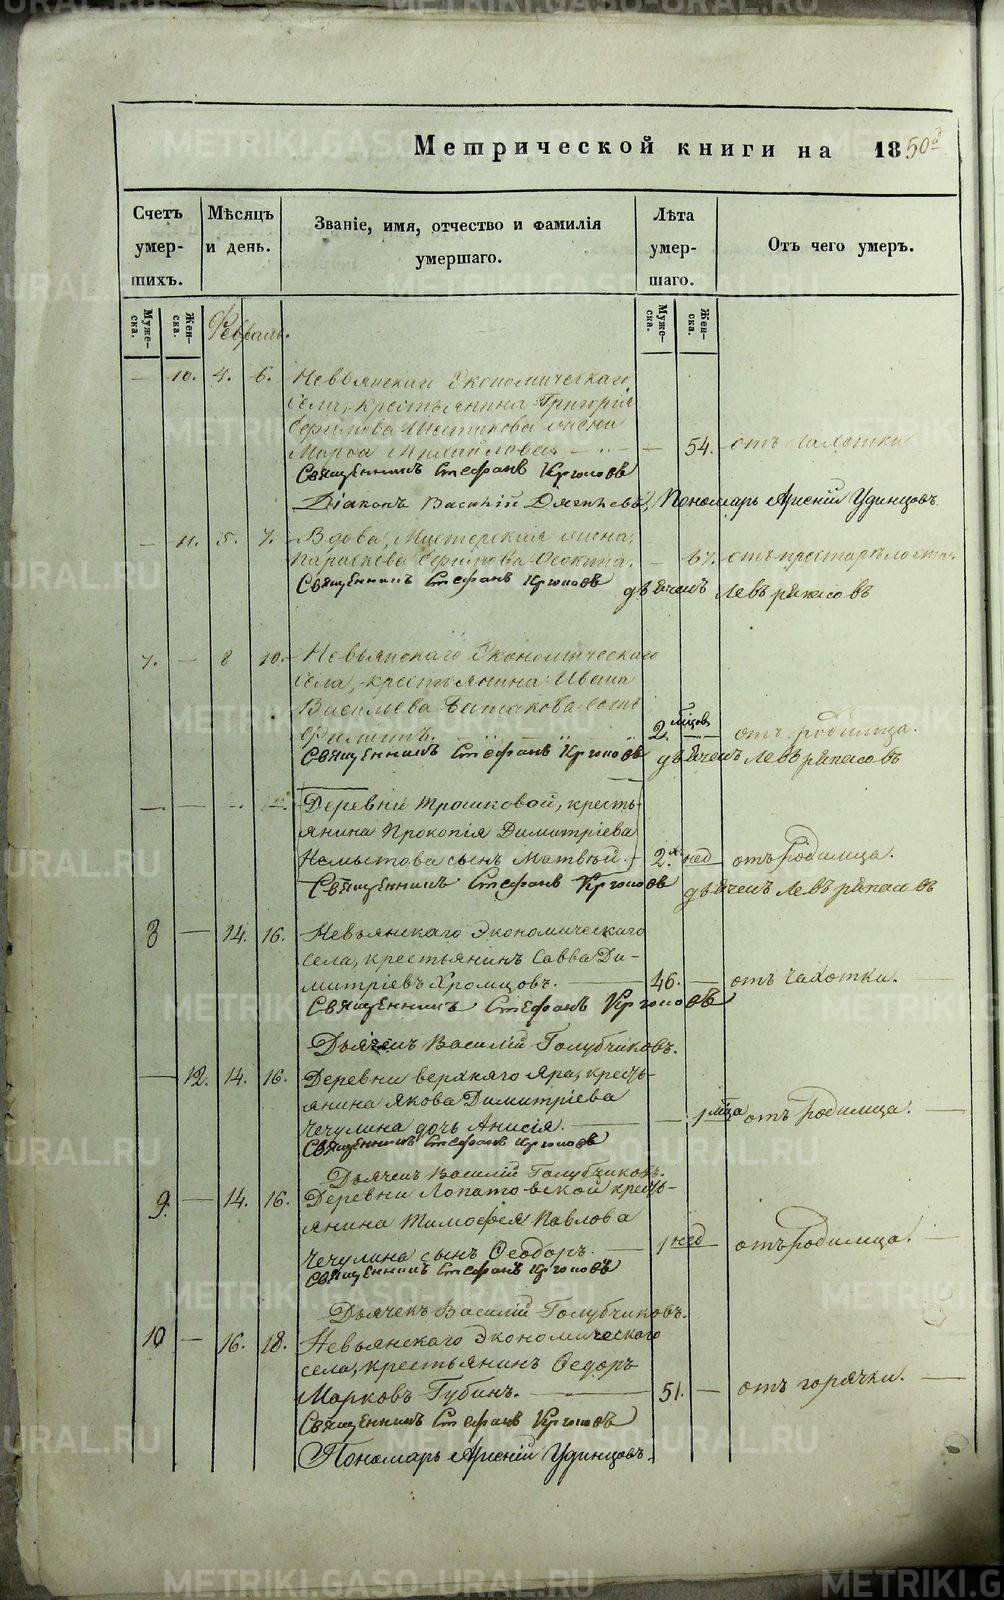 METRIKI.GASO-URAL.RU
Метрической книги на 1850й
Счетъ умер- шихъ.
Мѣсяцъ и день.
Званіе, имя, отчество и фамилія умершаго.
Лѣта умер- шаго.
Отъ чего умеръ.
Муже- ска.
Жен- ска.
Муже- ска.
Жен- ска.
Февраль.
— 10. 4. 6. Невьянскаго Экономическаго
села, крестьянина Григорія
Жена
Марѳа Михайлова — — 54. отъ чахотки
Священникъ Стефанъ
Діаконъ Василій Дягилевъ, Пономарь Арсеній Удинцовъ
— 11. 5. 7. Вдова, Мастерская жена,
Параскева Осокина. — 67. отъ престарѣлости.
Священникъ Стефанъ дьячекъ Левъ
7. — 8 10. Невьянскаго Экономическаго
села, крестьянина Ивана
Васильева сынъ
Филиппъ. 2. мѣсяцовъ отъ родимца.
Священникъ Стефанъ дьячекъ Левъ
— — — — Деревни Трошковой, кресть-
янина Прокопія Димитріева
сынъ Матвѣй. — 2.хъ нед отъ Родимца.
Священникъ Стефанъ дьячекъ Левъ
8 — 14. 16. Невьянскаго Экономическаго
села, крестьянинъ Савва Ди-
митріевъ Хромцовъ. — 46. — отъ чахотки. —
Священникъ Стефанъ
Дьячекъ Василій Голубчиковъ.
— 12. 14. 16. Деревни верхняго Яра, кресть-
янина Якова Димитріева
Чечулина дочь Анисія. — — 1 мѣца отъ Родимца. —
Священникъ Стефанъ
Дьячекъ Василій Голубчиковъ.
9. — 14. 16. Деревни Лопатовской кресть-
янина Тимофея Павлова
Чечулина сынъ Ѳеодоръ. — 1 нед отъ Родимца. —
Священникъ Стефанъ
Дьячекъ Василій Голубчиковъ.
10 — 16. 18. Невьянскаго Экономическаго
села, крестьянинъ Ѳедоръ
Марковъ Губинъ. — 51. — отъ горячки. —
Священникъ Стефанъ
Пономарь Арсеній Удинцовъ.